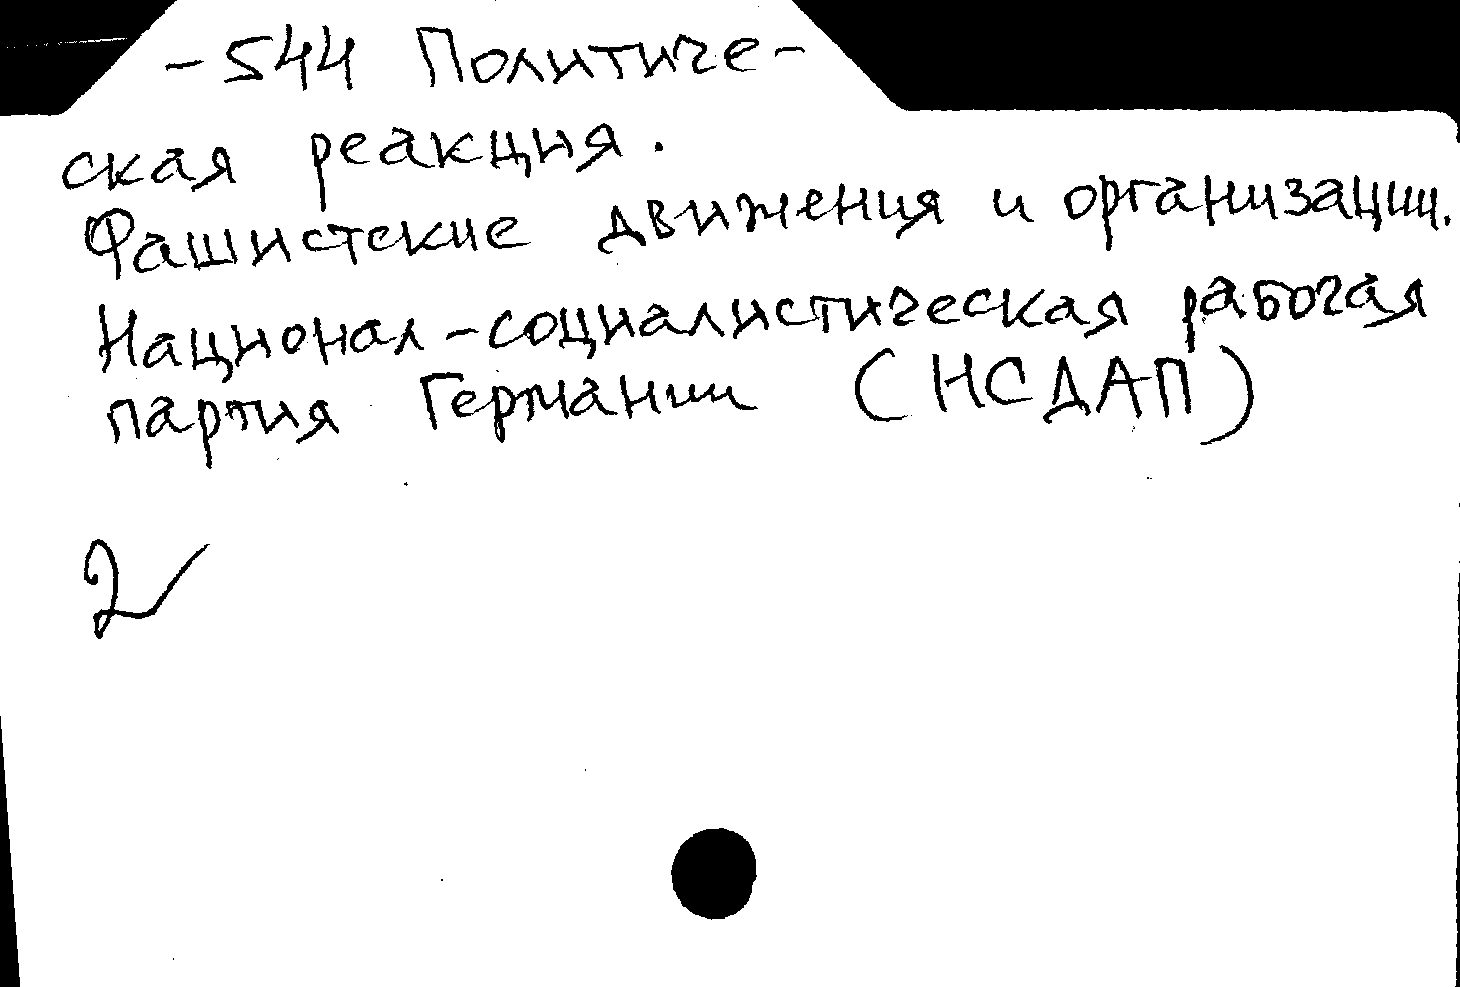 -544 Политиче-
ская реакция.
Фашистские движения и организации.
Национал-социалистическая рабочая
партия Германии (НСДАП)
2